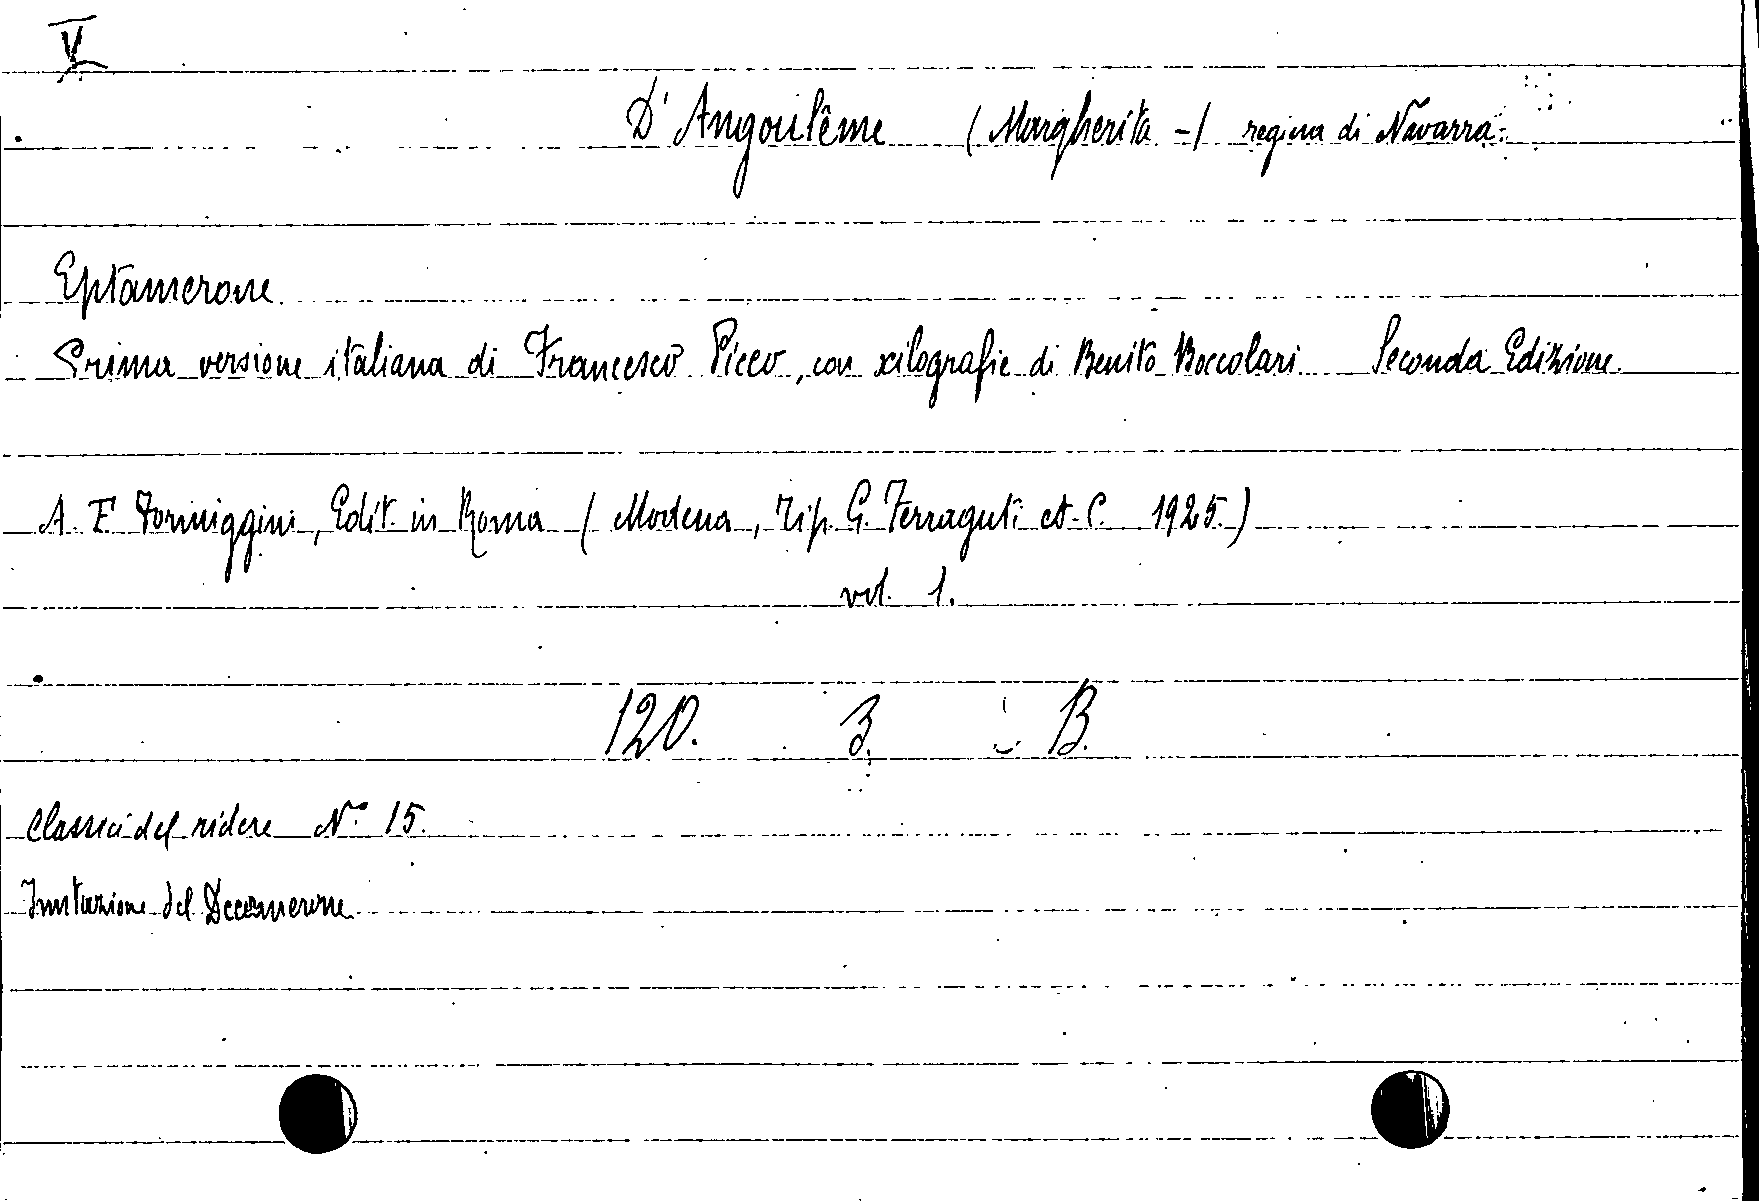 V
D'Angoulême (Margherita -) regina di Navarra.
Eptamerone
Prima versione italiana di Francesco Picco, con xilografie di Benito Boccolari Seconda Edizione
A. F. Formiggini, Edit. in Roma (Modena, Tip. G. Ferraguti et C. 1925.)
vol. 1.
120. 3. B.
Classici del ridere N° 15.
Imitazione del Decamerone